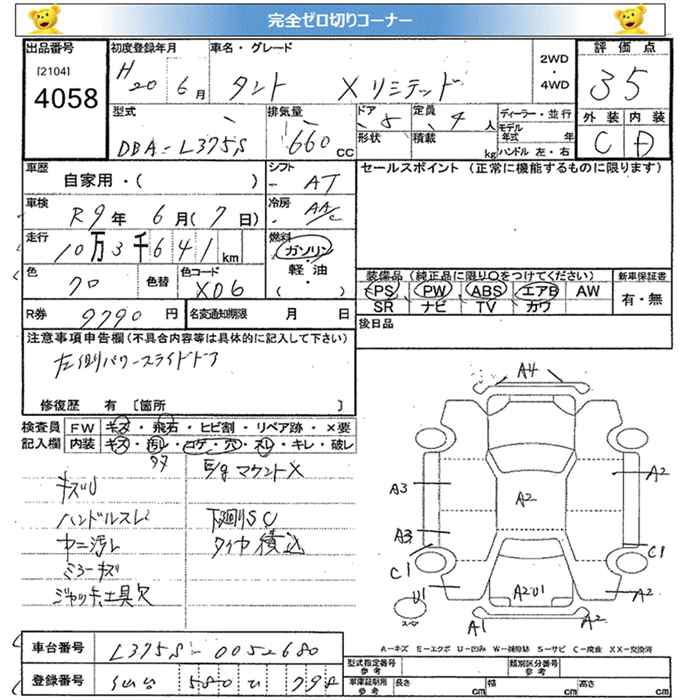 完全ゼロ切りコーナー
出品番号
[2104]
4058
初度登録年月
H20 6月
車名・グレード
タント Xリミテッド
2WD
・
4WD
評価点
35
型式
DBA-L375S
排気量
660 CC
ドア
5
定員
4人
形状
積載
kg
ディーラー・並行
モデル年式 年
ハンドル 左・右
外装 内装
C D
車歴
自家用・( )
シフト
AT
セールスポイント (正常に機能するものに限ります)
車検
R9年 6月(7日)
冷房
AA/C
走行
10万3千641km
燃料
ガソリン
軽油
( )
色
クロ
色替
色コード
X06
装備品(純正品に限り○をつけてください)
PS PW ABS エアB AW
SR ナビ TV カワ
新車保証書
有・無
R券
9790 円
名変通知期限 月 日
後日品
注意事項申告欄(不具合内容等は具体的に記入して下さい)
左側パワースライドドア
修復歴 有 [箇所 ]
検査員
記入欄
FW キズ・飛石・ヒビ割・リペア跡・×要
内装 キズ・汚レ・コゲ・穴・スレ・キレ・破レ
E/gマウントX
キズU
ハンドルスレ
下廻りSC
ヤニ汚レ
タイヤ積込
ミラーキズ
ジャッキ、工具欠
A4
A3
A2
A2
A3
C1
C1
U1
A2U1
A2
スペ
A1
A2
A-キズ E-エクボ U-凹み W-補修跡 S-サビ C-腐食 XX-交換済
車台番号
L375S-0052680
登録番号
580
794
型式指定番号
参考
類別区分番号
参考
車庫証明用
参考
長さ cm
幅 cm
高さ cm